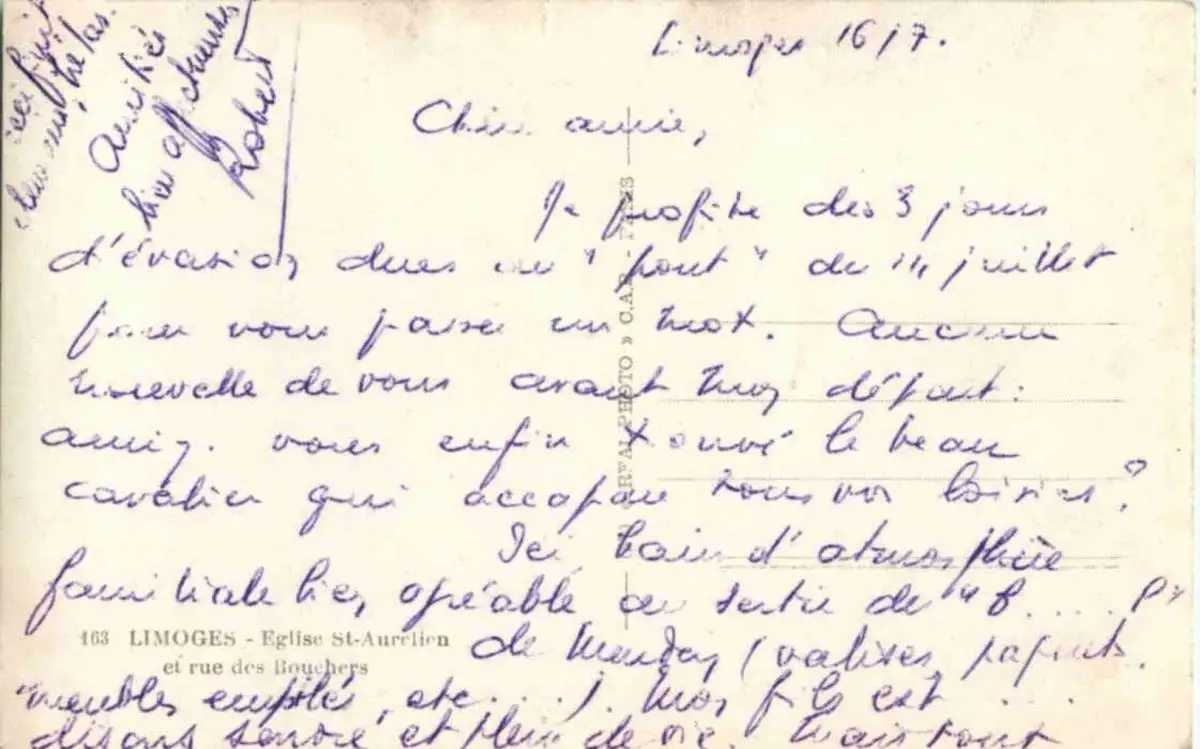 Limoges 16/7.
Chère amie,
Je profite des 3 jours
d'évasion dues au "pont" du 14 juillet
pour vous passer un mot. Aucune
nouvelle de vous avant mon départ:
auriez-vous enfin trouvé le beau
cavalier qui accapare tous vos loisirs?
Ici bain d'atmosphère
familiale bien agréable au sortir du "B....
163 LIMOGES - Eglise St-Aurélien
et rue des Bouchers
de Meudon (valises, paquets
meubles empilés, etc...). Mon fils est ...
disons sonore et plein de vie. Mais tout
ceci finit
hélas.
Amitiés
bien affectueuses
Robert
PHOTO » C.A.P. PARIS